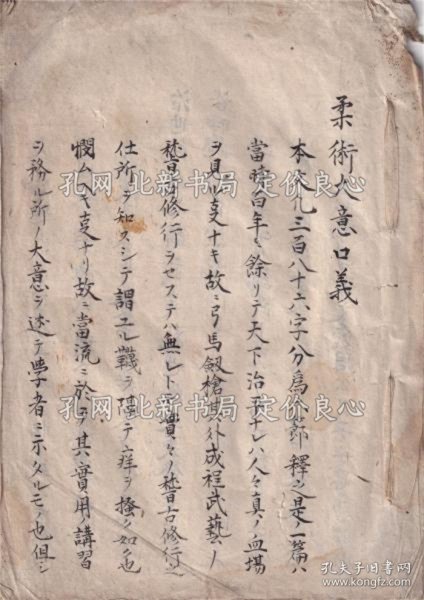 柔術大意口義
本文凡三百八十六字分為 節釋之是一篇ハ
當時百年ニ餘リテ天下治平ナレハ人々真ノ血場
ヲ見ル事ナキ故ニ弓馬剱槍其外成程武藝ノ
稽古修行ヲセステハ無レト 實々ノ稽古修行之
仕所ヲ知スシテ謂ユル韈ヲ隔テ痒ヲ搔ク如ク也
憫ムヘキ事ナリ故ニ當流ニ於テ其實用ノ講習
ヲ務ル所ノ大意ヲ述テ學者ニ示タルモノ也但シ
孔网 北新书局 定价良心
孔网 北新书局 定价良心
孔网 北新书局 定价良心
孔夫子旧书网
www.kongfz.com